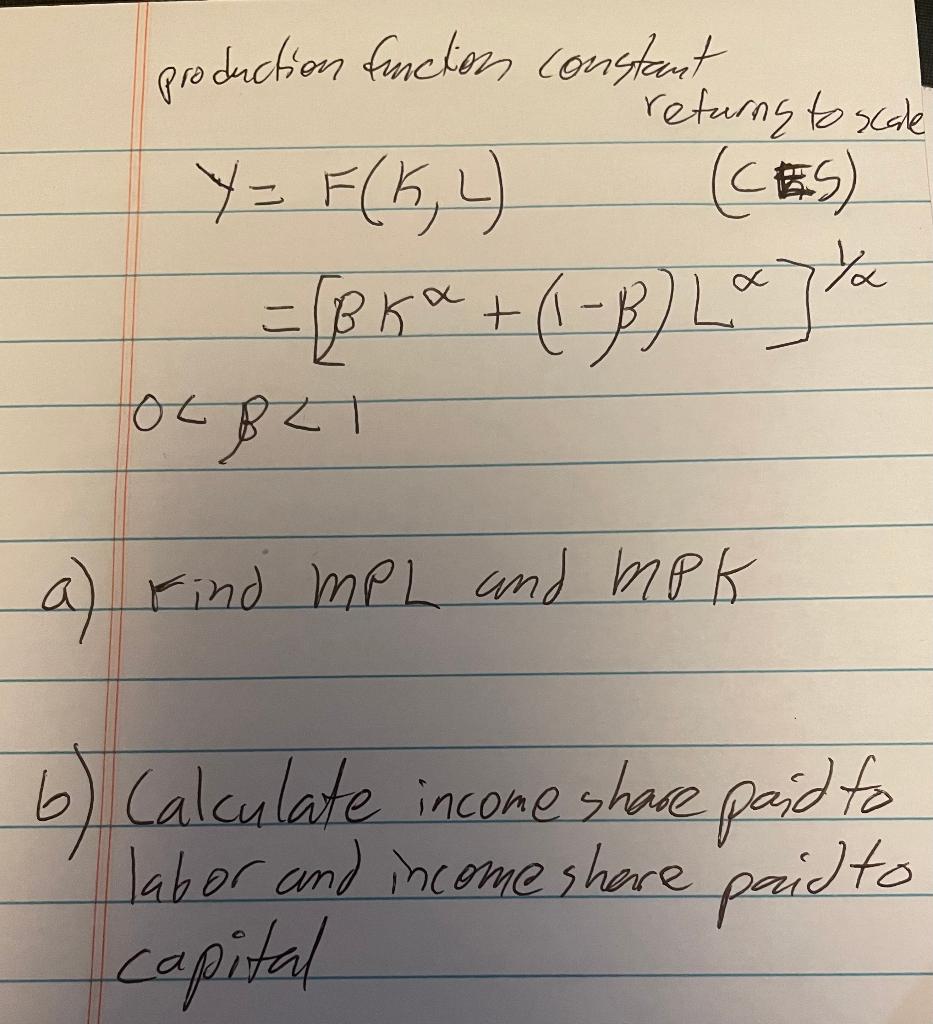 production function constant
returns to scale
Y = F(K, L) (CES)
= [β K^α + (1-β) L^α]^1/α
0 < β < 1
a) Find MPL and MPK
b) Calculate income share paid to
labor and income share paid to
capital